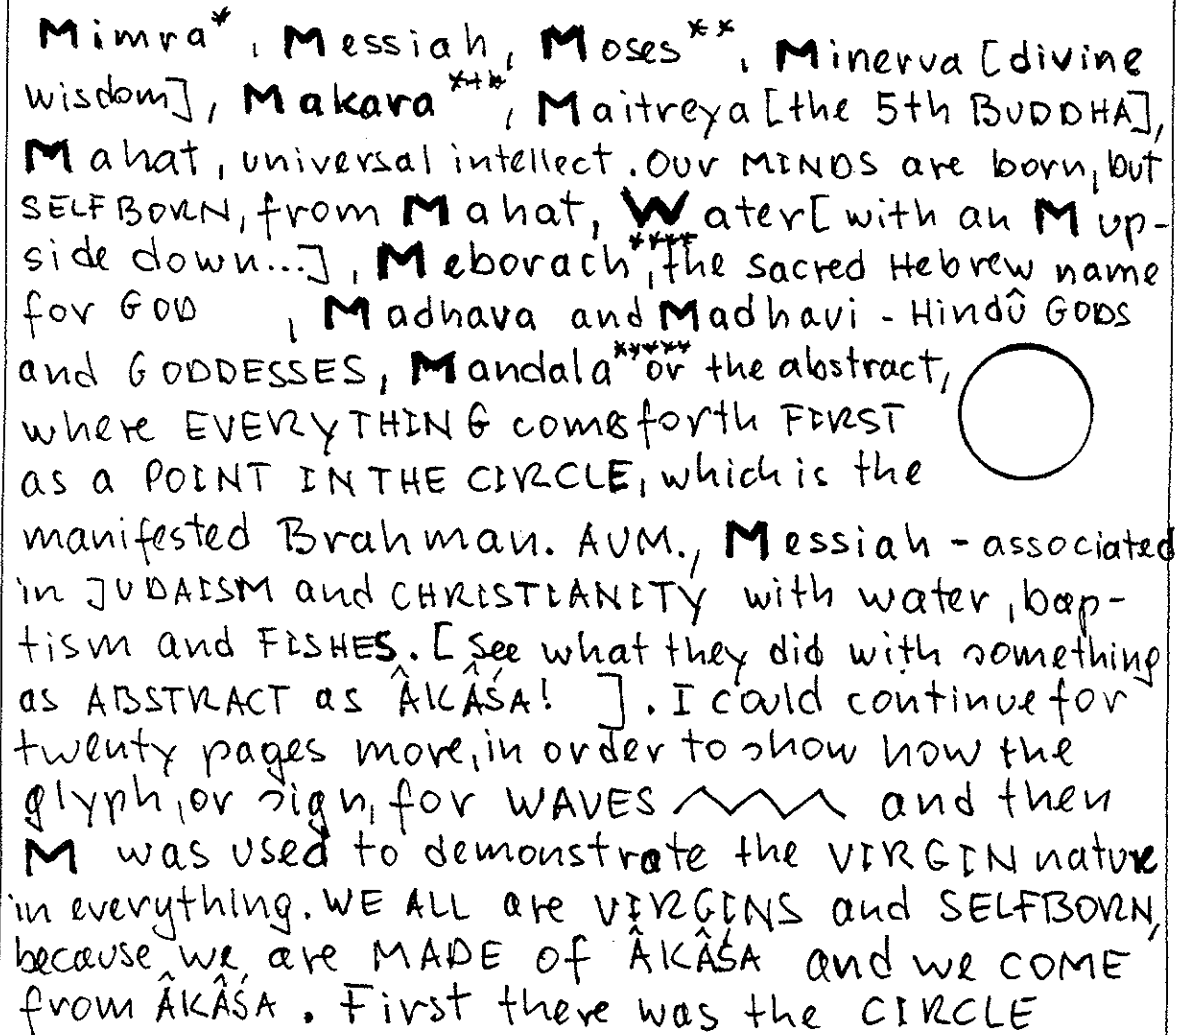 Mimra*, Messiah, Moses**, Minerva [divine
wisdom], Makara***, Maitreya [the 5th BUDDHA],
Mahat, universal intellect. OUR MINDS are born, but
SELFBORN, from Mahat, Water [with an M up-
side down...], Meborach****, the sacred Hebrew name
for GOD , Madhava and Madhavi - Hindû GODS
and GODDESSES, Mandala***** or the abstract,
where EVERYTHING comes forth FIRST
as a POINT IN THE CIRCLE, which is the
manifested Brahman. AUM., Messiah - associated
in JUDAISM and CHRISTIANITY with water, bap-
tism and FISHES. [See what they did with something
as ABSTRACT as ÂKÂŚA! ]. I could continue for
twenty pages more, in order to show how the
glyph, or sign, for WAVES and then
M was used to demonstrate the VIRGIN nature
in everything. WE ALL are VIRGINS and SELFBORN,
because we are MADE OF ÂKÂŚA and we COME
from ÂKÂŚA. First there was the CIRCLE